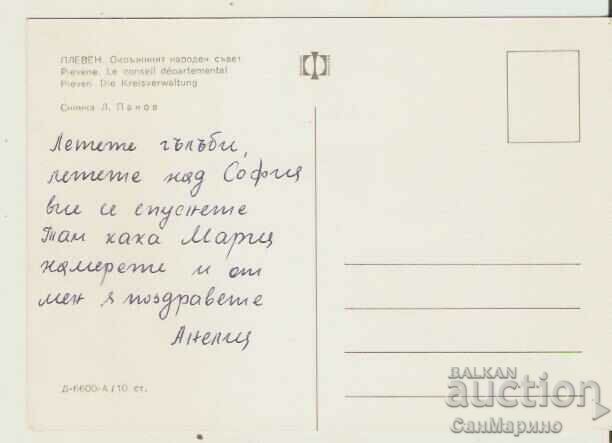 ПЛЕВЕН. Окръжният народен съвет
Plevene. Le conseil départemental
Pleven. Die Kreisverwaltung
Снимка Л. Панов
Летете гълъби,
летете над София
вие се спуснете
Там кака Мария
намерете и от
мен я поздравете
Анелия
Д-6600-А / 10 ст.
BALKAN
auction
СанМарино